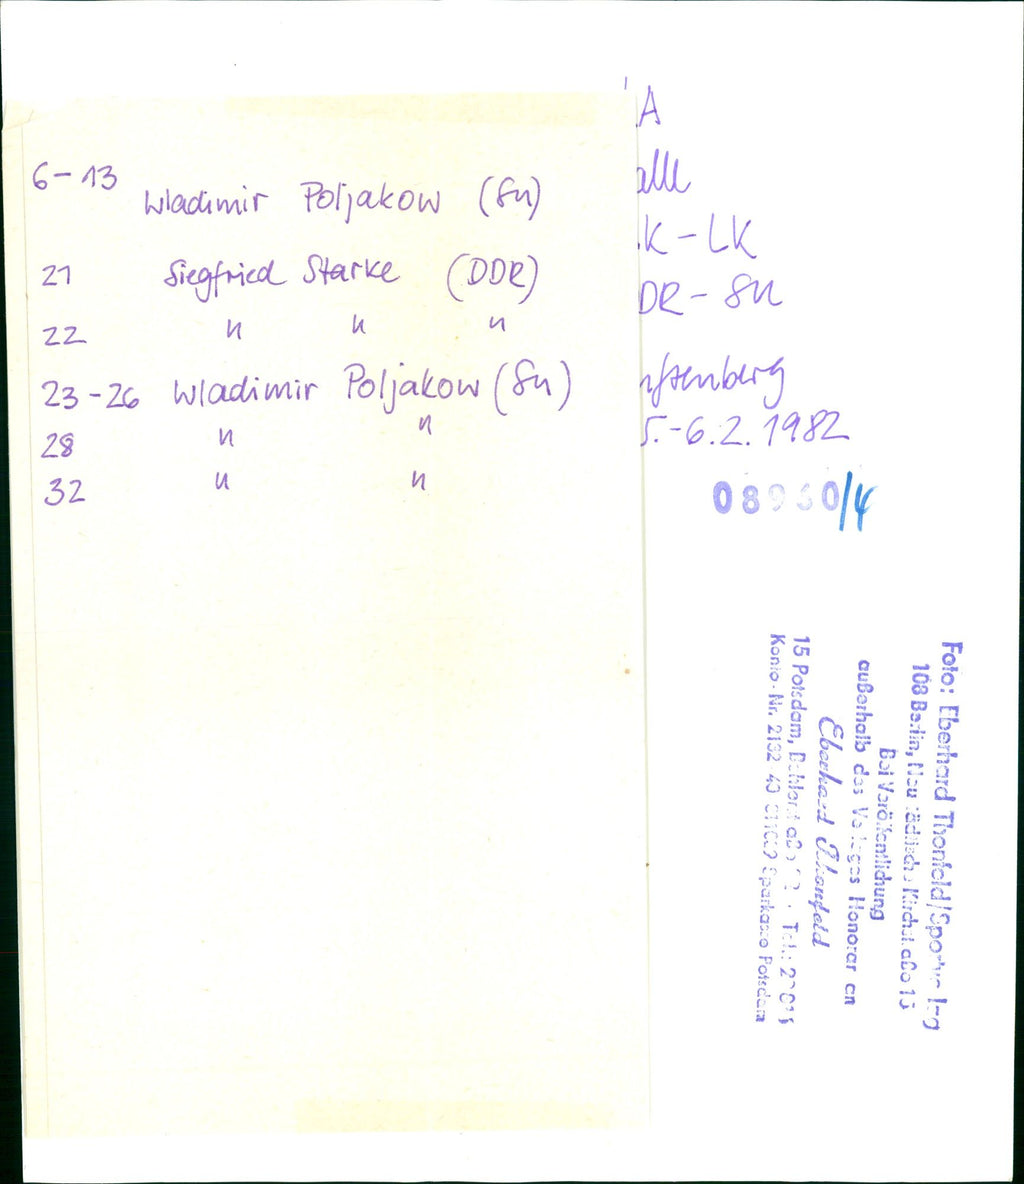 6-13 Wladimir Poljakow (SU)
21 Siegfried Starke (DDR)
22 " " "
23-26 Wladimir Poljakow (SU)
28 " "
32 " "
LA
alle
K-LK
DR-SU
nftenberg
5.-6.2.1982
08960/4
Foto: Eberhard Thonfeld/Sportverlag
108 Berlin, Neustädtische Kirchstraße 15
Bei Veröffentlichung
außerhalb des Verlages Honorar an
Eberhard Thonfeld
15 Potsdam, Tel.:
Konto-Nr. 2132 Sparkasse Potsdam